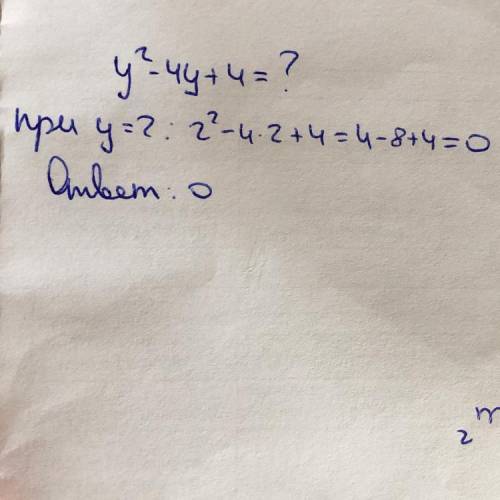 y²-4y+4=?
при y=2: 2²-4·2+4=4-8+4=0
Ответ: 0
2 m